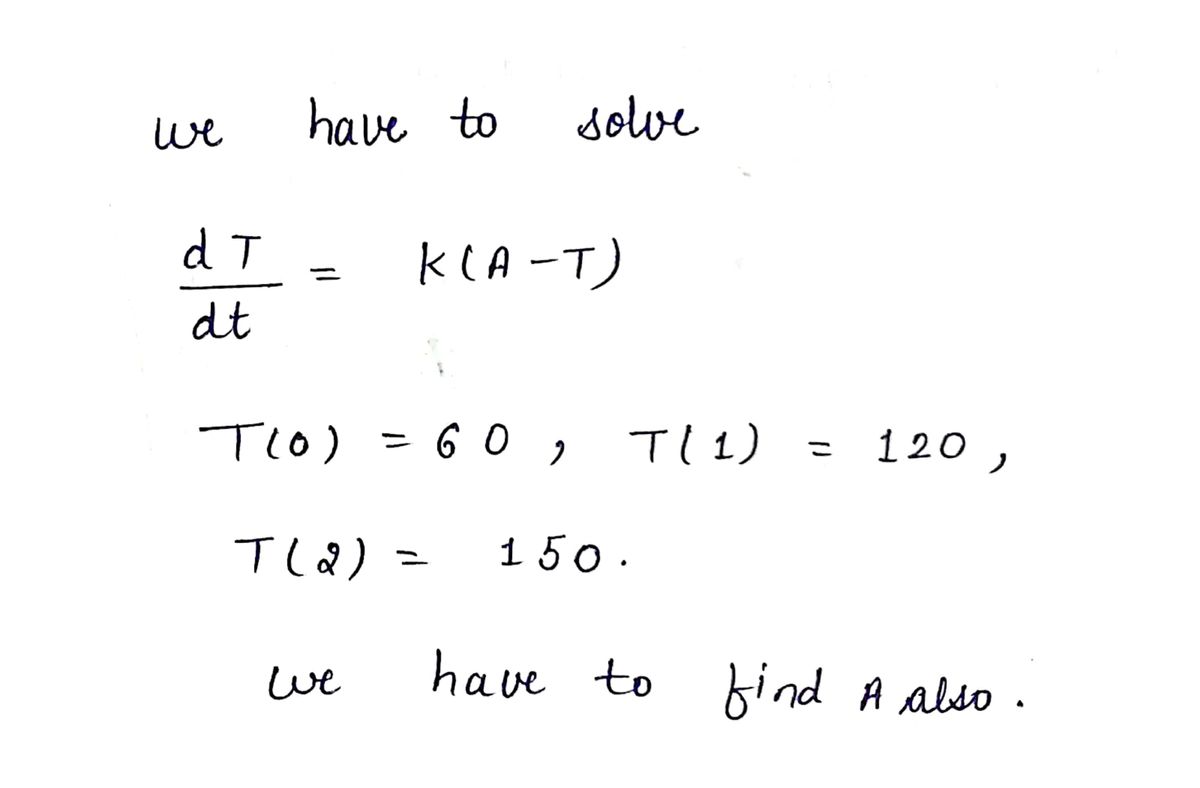 we have to solve
dT/dt = K(A-T)
T(0) = 60, T(1) = 120,
T(2) = 150.
we have to find A also.